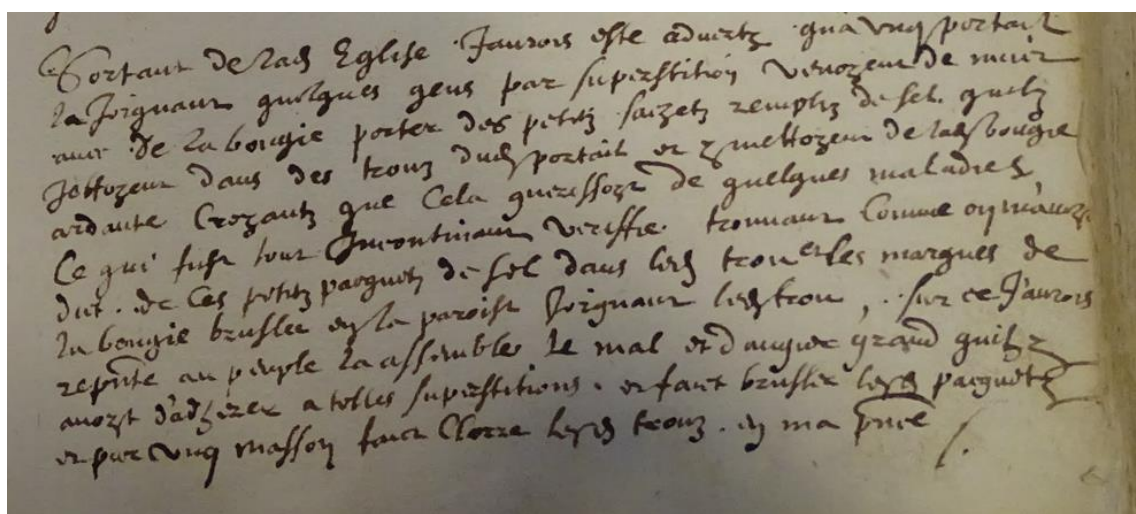 Sortant de lad Eglise Jaurois este aduerty qua ung portail
la Joignant quelques gens par superstition venozent de nuict
auec de la bougie porter des petitz saczetz remplyz de sel quilz
Jettozent dans des trouz dud portail et y mettozent de lad bougie
ardante Crozantz que Cela guerissozt de quelques maladies,
Ce qui fust tout Incontinant veriffie. trouuant Comme on mauozt
dict. de Ces petitz pacquetz de sel dans lesd trou et les marques de
la bougie bruslee en la paroist Joignant lesd trou, . sur ce J'aurois
repnte au peuple la assemble le mal et dangier grand quil y
avozt d'adherer a telles superstitions. et faict brusler lesd pacquetz
et par ung masson faict Clorre lesd trouz. en ma pnce /.